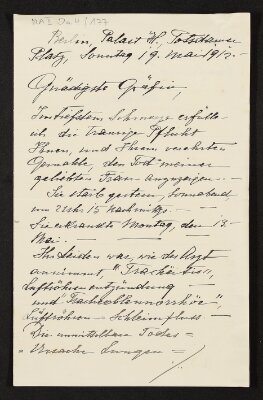 Berlin, Palast H., Potsdamer
Platz, Sonntag 19. Mai 1912.
Gnädigste Gräfin,
Im tiefsten Schmerze erfülle
ich die traurige Pflicht
Ihnen, und Ihrem verehrten
Gemahle, den Tod meiner
geliebten Frau anzuzeigen. —
Sie starb gestern, Sonnabend
um 2 Uhr 15 nachmittgs. —
Sie erkrankte Montag, den 13.
Mai. —
Ihr Leiden war, wie der Arzt
annimmt, "Tracheitis",
Luftröhrenentzündung —
und "Tracheoblennorrhöe",
Luftröhren-Schleimfluss —
Die unmittelbare Todes=
Ursache Lungen=